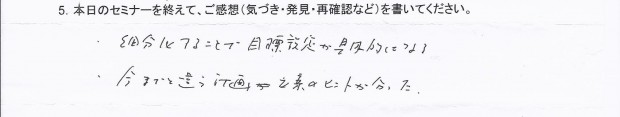 5. 本日のセミナーを終えて、ご感想(気づき・発見・再確認など)を書いてください。
・細分化することで目標設定が具体的になる
・今までと違う計画 立案のヒントが 分った.